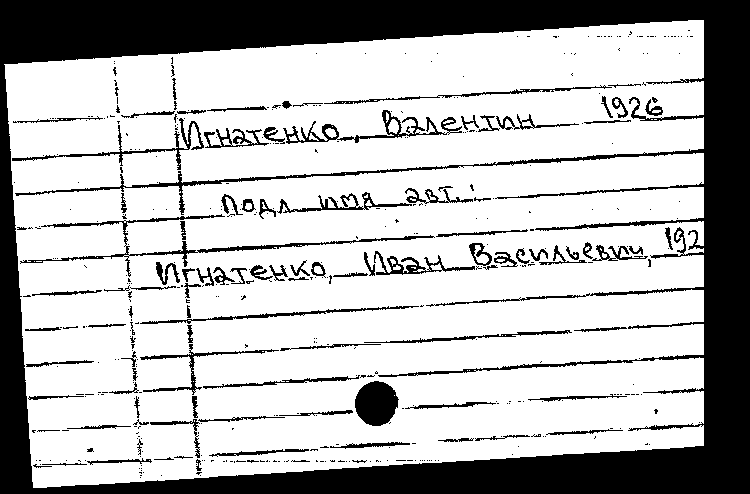 Игнатенко, Валентин 1926
подл имя авт.:
Игнатенко, Иван Васильевич, 192